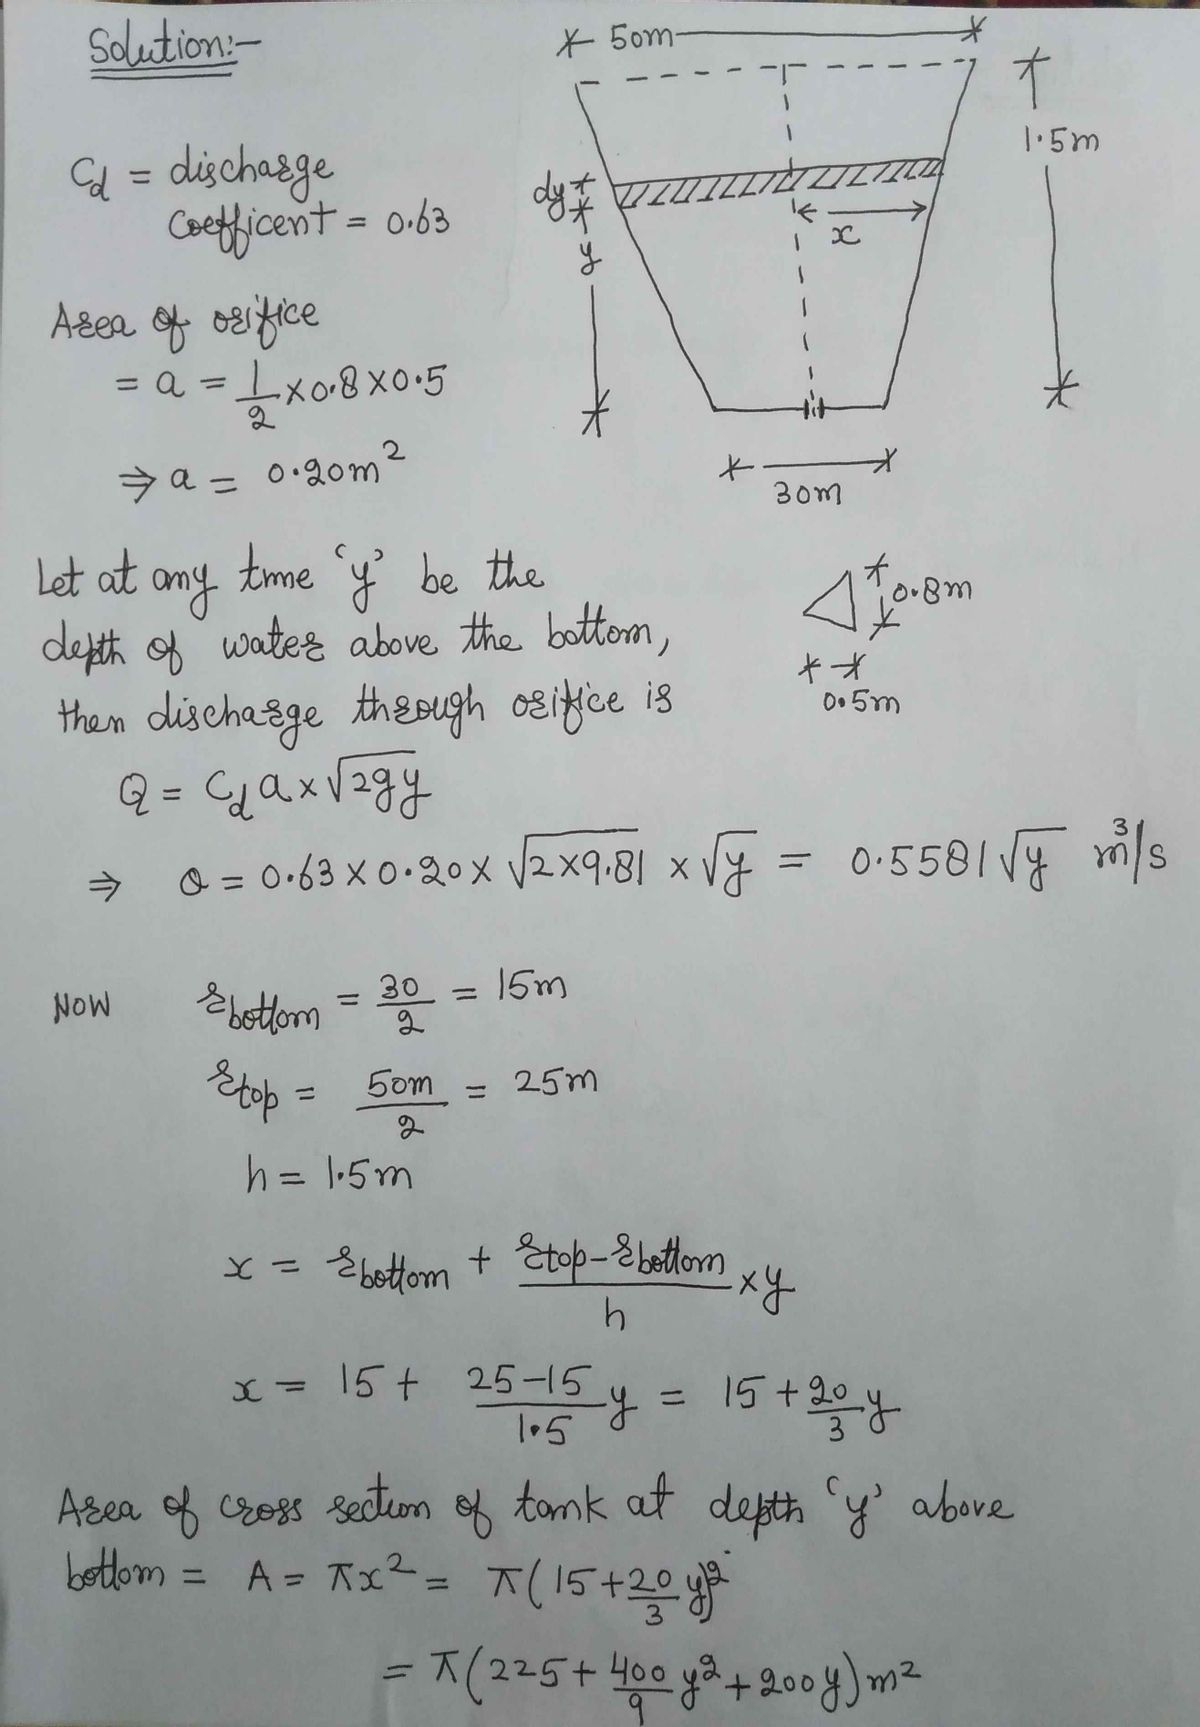 Solution:-
50m
1.5m
dy
y
x
30m
Cd = discharge
Coefficent = 0.63
Area of orifice
= a = 1/2 × 0.8 × 0.5
⇒ a = 0.20m²
0.8m
0.5m
Let at any time 'y' be the
depth of water above the bottom,
then discharge through orifice is
Q = Cd a × √2gy
⇒ Q = 0.63 × 0.20 × √2×9.81 × √y = 0.5581√y m³/s
Now r bottom = 30/2 = 15m
r top = 50m/2 = 25m
h = 1.5m
x = r bottom + (r top - r bottom)/h × y
x = 15 + (25-15)/1.5 y = 15 + 20/3 y
Area of cross section of tank at depth 'y' above
bottom = A = πx² = π(15 + 20/3 y)²
= π(225 + 400/9 y² + 200y) m²